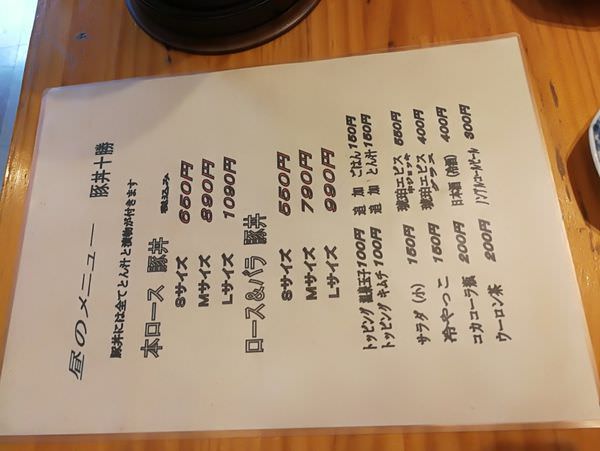 昼のメニュー 豚丼十勝
豚丼には全てとん汁と漬物が付きます
本ロース 豚丼 税込み
Sサイズ 650円
Mサイズ 890円
Lサイズ 1090円
ロース&バラ 豚丼
Sサイズ 550円
Mサイズ 790円
Lサイズ 990円
トッピング 温泉玉子100円 追加 ごはん150円
トッピング キムチ100円 追加 とん汁150円
サラダ(小) 150円 琥珀エビス 中ジョッキ 550円
冷やっこ 150円 琥珀エビス グラス 400円
コカコーラ瓶 200円 日本酒(冷酒) 400円
ウーロン茶 200円 ノンアルコールビール 300円